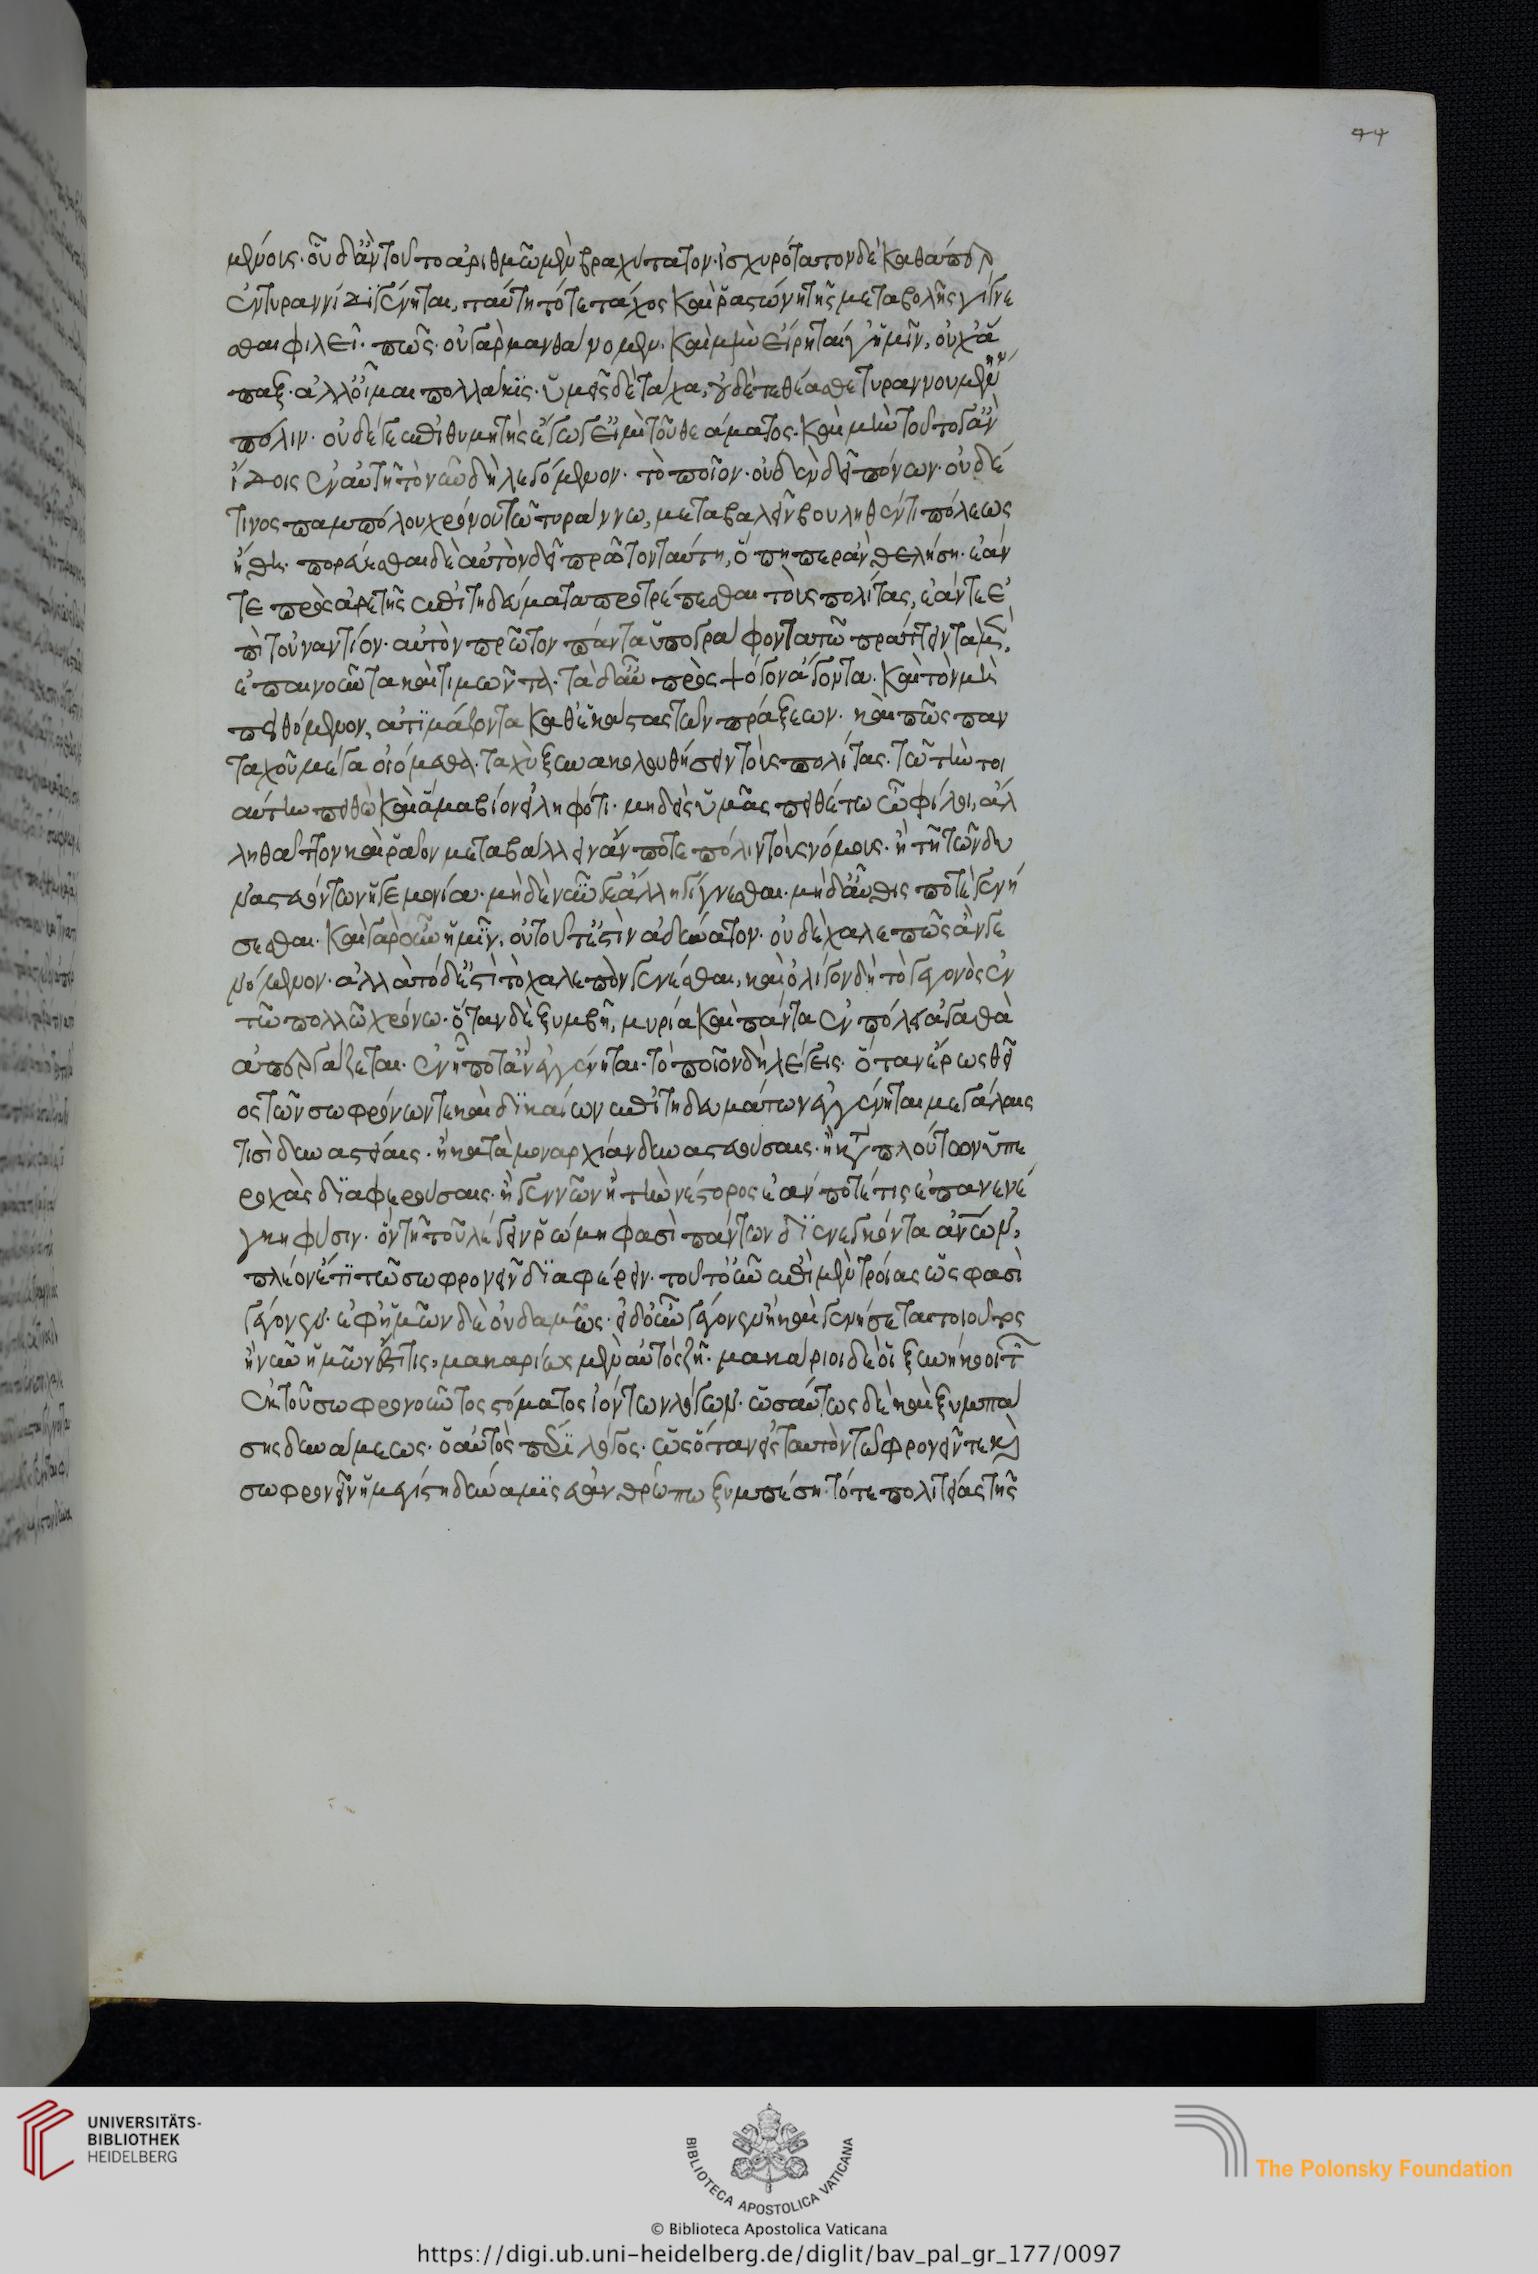 44
μένοις· οὗ δ' ἂν τοῦτο ἀριθμῶ μὲν βραχύτατον· ἰσχυρότατον δὲ καθάπερ
ἐν τυραννίδϊ γένηται, ταύτη τότε τάχος καὶ ῥαστώνη τῆς μεταβολῆς γίγνε
σθαι φιλεῖ· πῶς· οὐ γὰρ μανθάνομεν. καὶ μὴν εἴρηταί γ' ἡμῖν, οὐχ ἅ
παξ· ἀλλ' οἶμαι πολλάκϊς· ὑμεῖς δὲ τάχα, οὐδὲ τεθέασθε τυραννουμένην
πόλιν· οὐδέ γε ἐπιθυμητὴς ἔγωγ' εἰμὶ τοῦ θεάματος. καὶ μὴν τοῦτό γ' ἂν
ἴδοις ἐν αὐτῆ τὸ νῦν δὴ λεγόμενον· τὸ ποῖον· οὐδὲν δεῖ πόνων· οὐδέ
τινος παμπόλου χρόνου τῶ τυράννω, μεταβαλεῖν βουληθέντι πόλεως
ἤθη· πορεύεσθαι δὲ αὐτὸν δεῖ πρῶτον ταύτη, ὅπηπερ ἂν θελήση· ἐάν
τε πρὸς ἀρετῆς ἐπιτηδεύματα προτρέπεσθαι τοὺς πολίτας, ἐάν τε ἐ
πὶ τοὐναντίον· αὐτὸν πρῶτον πάντα ὑπογράφοντα τῶ πράττειν τὰ μὲν
ἐπαινοῦντα καὶ τιμῶντα· τὰ δ' αὖ πρὸς ψόγον ἄγοντα. καὶ τὸν μὴ
πειθόμενον, ἀτϊμάζοντα καθ' ἑκάστας τῶν πράξεων· καὶ πῶς παν
ταχοῦ μέγα οἰόμεθα· ταχὺ ξυνακολουθήσειν τοὺς πολίτας· τῶ τὴν τοι
αύτην πειθὼ καὶ ἅμα βίον εἰληφότι· μηδεὶς ὑμᾶς πειθέτω ὦ φίλοι, ἄλ
λη θᾶττον καὶ ῥᾶον μεταβάλλειν ἄν ποτε πόλιν τοὺς νόμους· ἢ τῆ τῶν δυ
ναστευόντων ἡγεμονία· μὴ δὲ νῦν γε ἄλλη γίγνεσθαι· μὴ δ' αὖθις ποτὲ γενή
σεσθαι· καὶ γὰρ οὖν ἡμῖν, οὐ τοῦτ' ἐστὶν ἀδύνατον· οὐδὲ χαλεπῶς ἂν γε
νόμενον· ἀλλὰ τόδ' ἐστὶ τὸ χαλεπὸν γενέσθαι, καὶ ὀλίγον δὴ τὸ γεγονὸς ἐν
τῶ πολλῶ χρόνω· ὅταν δὲ ξυμβῆ, μυρία καὶ πάντα ἐν πόλει ἀγαθὰ
ἀπεργάζεται· ἐν ἧ ποτ' ἂν ἐγγένηται· τὸ ποῖον δὴ λέγεις· ὅταν ἔρως θεῖ
ος τῶν σωφρόνων τε καὶ δϊκαίων ἐπιτηδευμάτων ἐγγένηται μεγάλαις
τισὶ δυναστείαις· ἢ κατὰ μοναρχίαν δυναστευούσαις· ἢ κατὰ πλούτων ὑπε
ροχὰς δϊαφερούσαις· ἢ γεννῶν ἢ τὴν νέστορος ἐάν ποτέ τις ἐπανενέ
γκη φύσιν· ὃν τῆ τοῦ λέγειν ῥώμη φασὶ πάντων δϊενεγκόντα ἀνθρώπων,
πλέον ἔτϊ τῶ σωφρονεῖν δϊαφέρειν· τοῦτ' οὖν ἐπὶ μὲν τροίας ὥς φασὶ
γέγονεν· ἐφ' ἡμῶν δὲ οὐδαμῶς· εἰ δ' οὖν γέγονεν ἢ καὶ γενήσεται τοιοῦτος
ἢ νῦν ἡμῶν ἔστι τις, μακαρίως μὲν αὐτὸς ζῆ· μακάριοι δὲ οἱ ξυνήκοοι τῶν
ἐκ τοῦ σωφρονοῦντος στόματος ἰόντων λόγων· ὡσαύτως δὲ καὶ ξυμπά
σης δυνάμεως· ὁ αὐτὸς πέρϊ λόγος· ὡς ὅταν εἰς ταὐτὸν τῶ φρονεῖν τε καὶ
σωφρονεῖν ἡ μεγίστη δύναμϊς ἐν ἀνθρώπω ξυμπέση· τότε πολιτείας τῆς
UNIVERSITÄTS-
BIBLIOTHEK
HEIDELBERG
BIBLIOTECA APOSTOLICA VATICANA
The Polonsky Foundation
© Biblioteca Apostolica Vaticana
https://digi.ub.uni-heidelberg.de/diglit/bav_pal_gr_177/0097